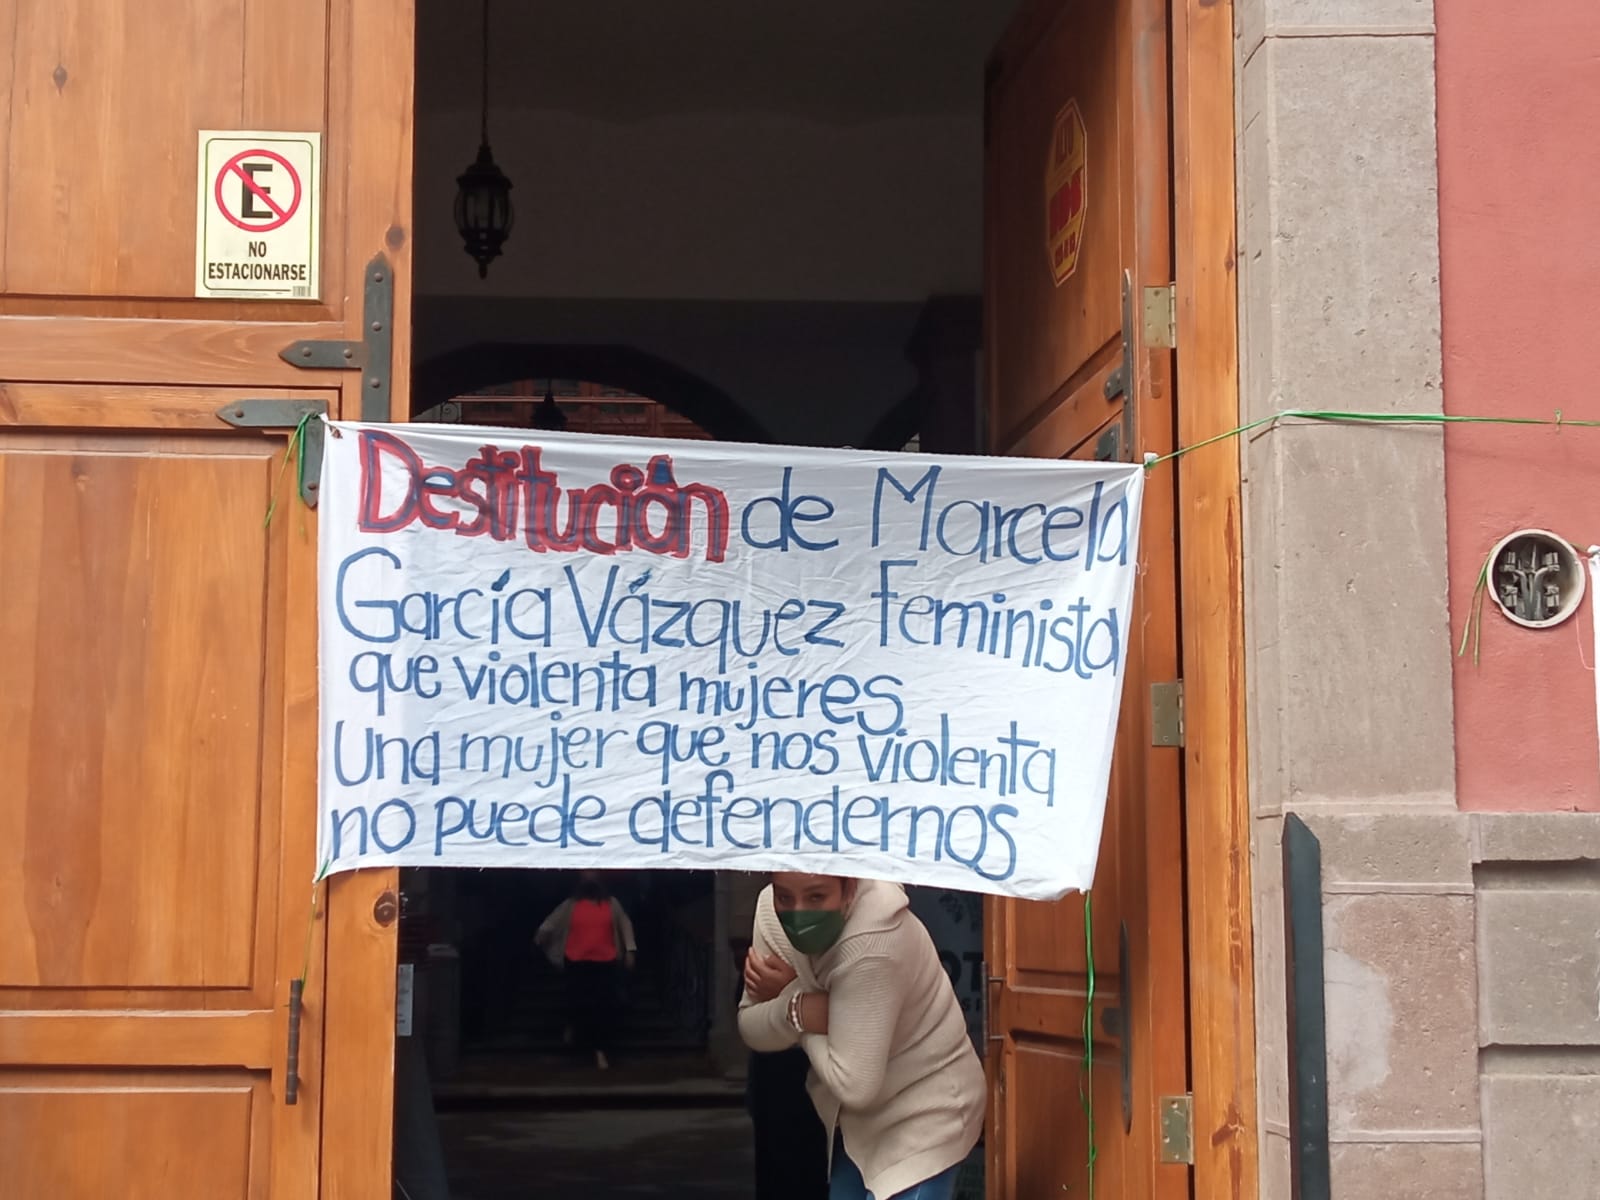 E
NO
ESTACIONARSE
Destitución de Marcela
García Vázquez Feminista
que violenta mujeres
Una mujer que nos violenta
no puede defendernos